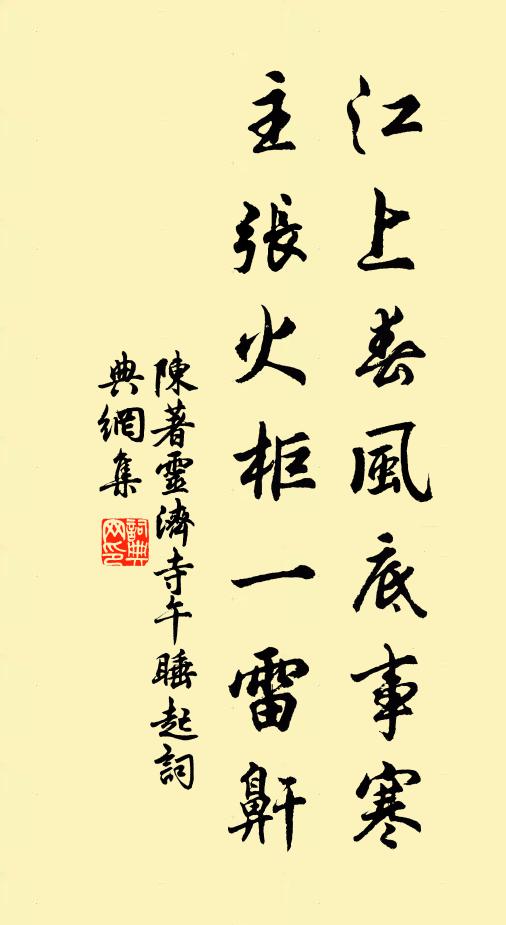 江上春風底事寒
主張火柜一雷鼾
陳著靈濟寺午睡起詞
典網集
詞典網印